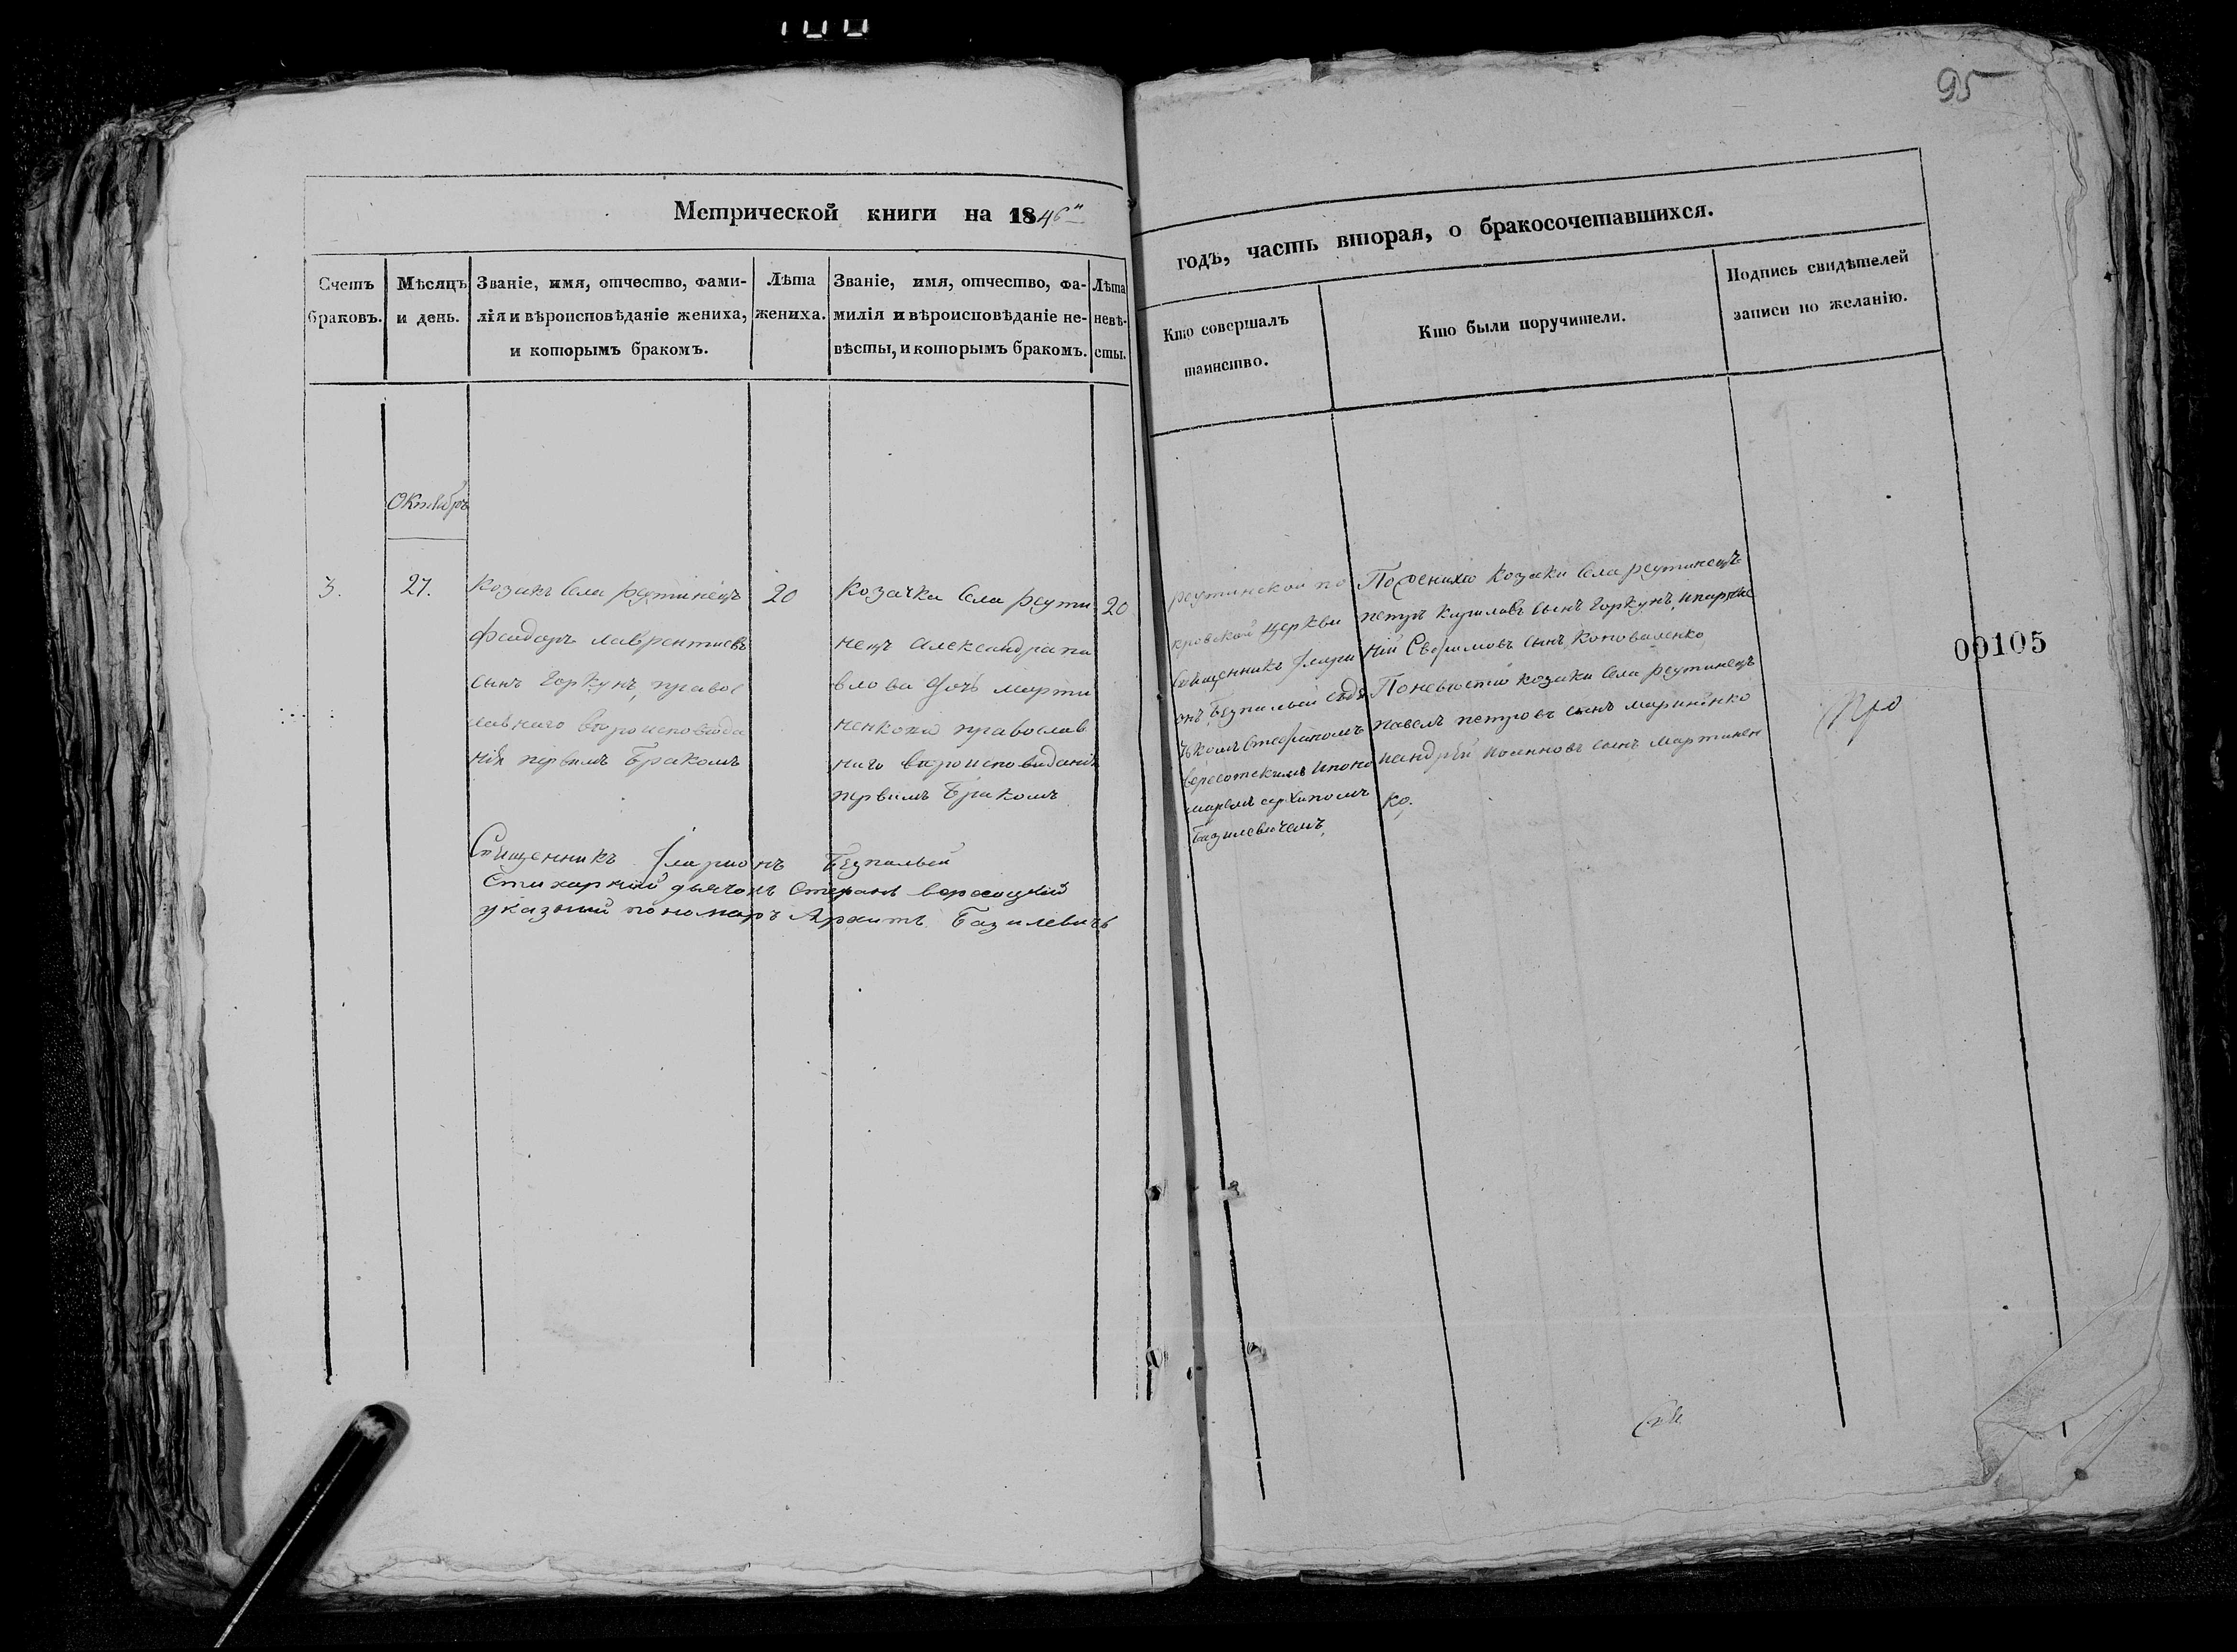 95
Метрической книги на 1846й
годъ, часть вторая, о бракосочетавшихся.
Счетъ браковъ.
Мѣсяцъ и день.
Званіе, имя, отчество, фами-
лія и вѣроисповѣданіе жениха,
и которымъ бракомъ.
Лѣта
жениха.
Званіе, имя, отчество, фа-
милія и вѣроисповѣданіе не-
вѣсты, и которымъ бракомъ.
Лѣта
невѣ-
сты.
Кто совершалъ
таинство.
Кто были поручители.
Подпись свидѣтелей
записи по желанію.
Октябръ
3.
27.
Козакъ села реутинецъ
Феодоръ лаврентиевъ
сынъ Горкунъ, правос
лавнаго вѣроисповѣда
нія первымъ Бракомъ
20
Козачка села реути
нецъ александра па
влова дочь марти
ненкова православ
наго вѣроисповиданія
первымъ Бракомъ
20
реутинской по
кровской церкви
священникъ Iлари
онъ Безпалый съдя
чкомъ стефаномъ
вересотскимъ ипоно
маремъ архипомъ
Базилевичемъ,
Пожениху козаки села реутинецъ
петръ кириловъ сынъ Горкунъ,
сынъ Коноваленко
Поневѣстѣ козаки села реутинецъ
павелъ петровъ сынъ
иандрей сынъ мартинен
ко.
Священникъ Iларионъ Безпалый
Стихарний дьячокъ Стефанъ вересоцкий
указний пономаръ Архипъ Базилевичъ
00105
Про